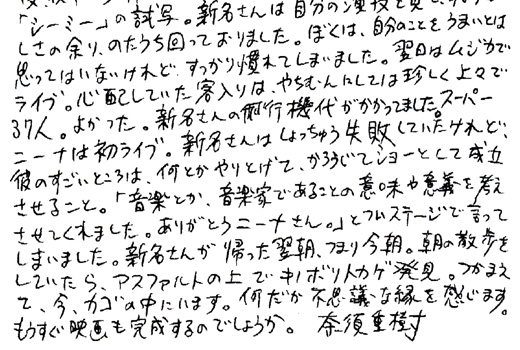 「シーミー」の試写。新名さんは自分の演技を見て、
しさの余り、のたうち回っておりました。ぼくは、自分のことをうまいとは
思ってはいないけれど、すっかり慣れてしまいました。翌日はムジカで
ライブ。心配していた客入りは、やちむんにしては珍しく上々で
37人。よかった。新名さんの飛行機代がかかってました。スーパー
ニーナは初ライブ。新名さんはしょっちゅう失敗していたけれど、
彼のすごいところは、何とかやりとげて、かろうじてショーとして成立
させること。「音楽とか、音楽家であることの意味や意義を考え
させてくれました。ありがとうニーナさん。」とついステージで言って
しまいました。新名さんが帰った翌朝、つまり今朝。朝の散歩を
していたら、アスファルトの上でキノボリトカゲ発見。つかまえ
て、今、カゴの中にいます。何だか不思議な縁を感じます。
もうすぐ映画も完成するのでしょうか。 奈須重樹